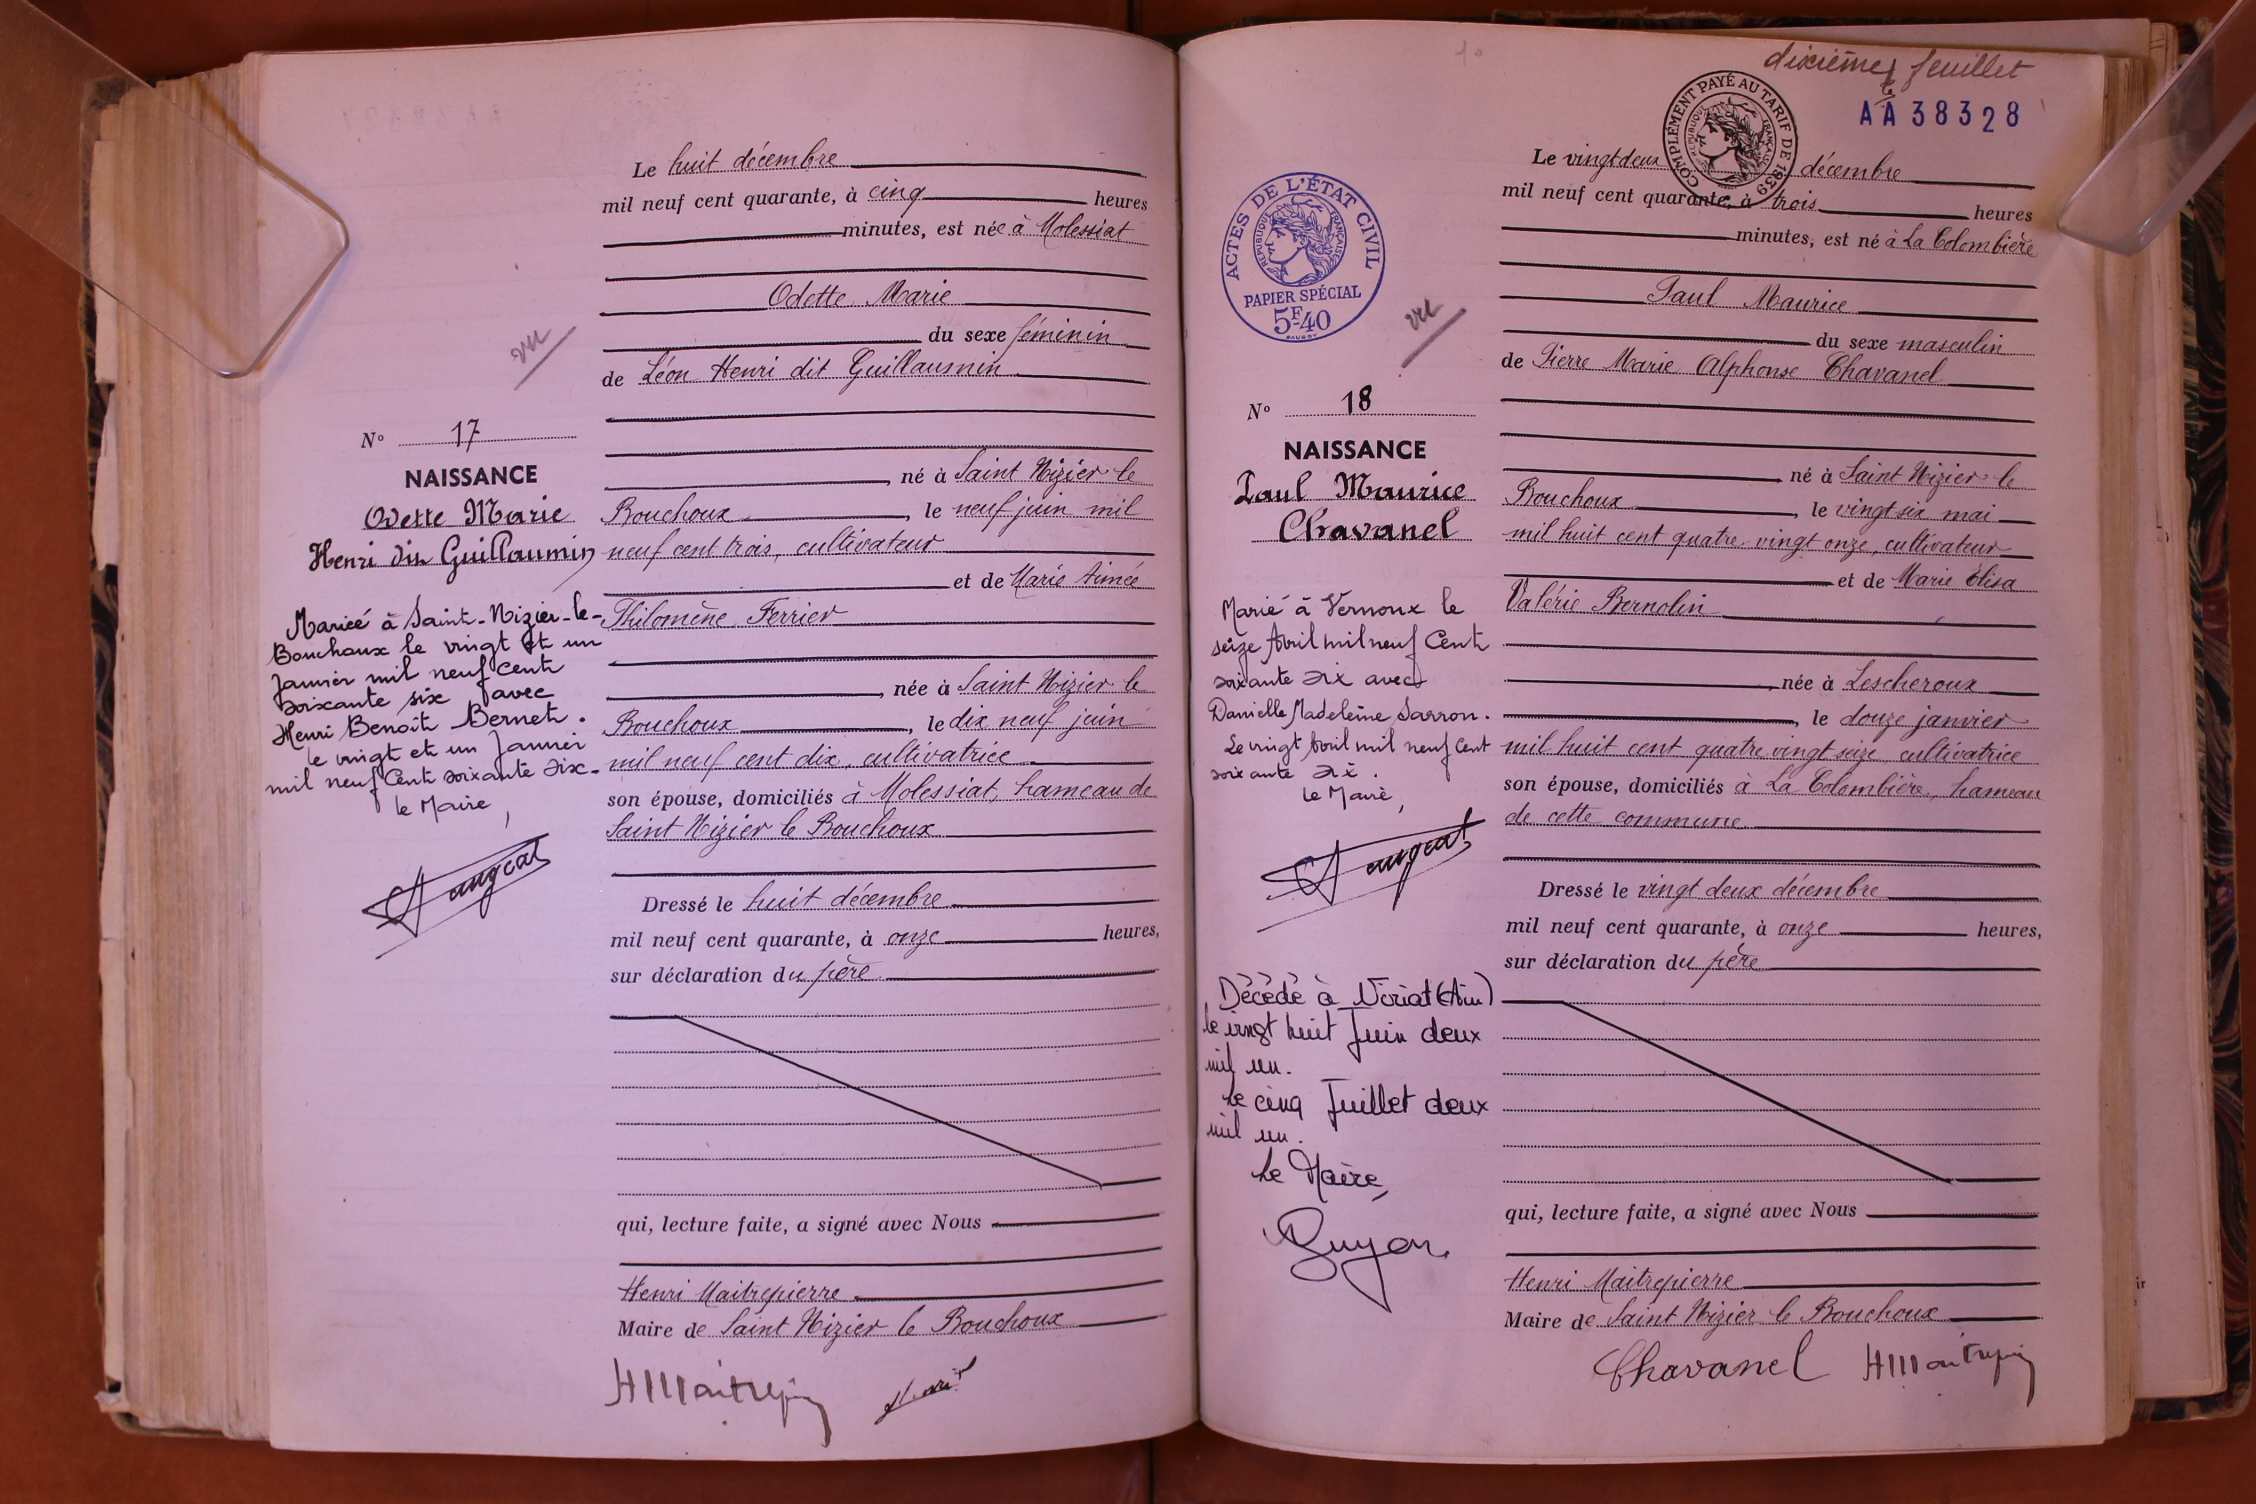 Le huit décembre
mil neuf cent quarante, à cinq heures
minutes, est née à Molessiat
Odette Marie
du sexe féminin
de Léon Henri dit Guillaumin
né à Saint Nizier le
Bouchoux, le neuf juin mil
neuf cent trois, cultivateur
et de Marie Aimée
Philomène Ferrier
née à Saint Nizier le
Bouchoux, le dix neuf juin
mil neuf cent dix, cultivatrice
son épouse, domiciliés à Molessiat, hameau de
Saint Nizier le Bouchoux
Dressé le huit décembre
mil neuf cent quarante, à onze heures,
sur déclaration du père
qui, lecture faite, a signé avec Nous
Henri Maitrepierre
Maire de Saint Nizier le Bouchoux
HMaitrepierre Henri
vu
N° 17
NAISSANCE
Odette Marie
Henri dit Guillaumin
Mariée à Saint-Nizier-le-
Bouchoux le vingt et un
Janvier mil neuf cent
soixante six avec
Henri Benoît Bernet.
le vingt et un Janvier
mil neuf Cent soixante six.
le Maire,
dixième feuillet
AA 38328
COMPLÉMENT PAYÉ AU TARIF DE 1939
RÉPUBLIQUE FRANÇAISE
ACTES DE L'ÉTAT CIVIL
RÉPUBLIQUE FRANÇAISE
PAPIER SPÉCIAL
5F40
vu
N° 18
NAISSANCE
Paul Maurice
Chavanel
Marié à Vernoux le
seize Avril mil neuf Cent
soixante six avec
Danielle Madeleine Sarron.
Le vingt Avril mil neuf Cent
soixante six.
Le Maire,
Décédé à Viriat (Ain)
le vingt huit Juin deux
mil un.
Le cinq Juillet deux
mil un.
Le Maire,
Guyon
Le vingt deux décembre
mil neuf cent quarante, à trois heures
minutes, est né à La Colombière
Paul Maurice
du sexe masculin
de Pierre Marie Alphonse Chavanel
né à Saint Nizier le
Bouchoux, le vingt six mai
mil huit cent quatre vingt onze, cultivateur
et de Marie Elisa
Valérie Bernolin
née à Lescheroux
, le douze janvier
mil huit cent quatre vingt seize, cultivatrice
son épouse, domiciliés à La Colombière, hameau
de cette commune
Dressé le vingt deux décembre
mil neuf cent quarante, à onze heures,
sur déclaration du père
qui, lecture faite, a signé avec Nous
Henri Maitrepierre
Maire de Saint Nizier le Bouchoux
Chavanel HMaitrepierre